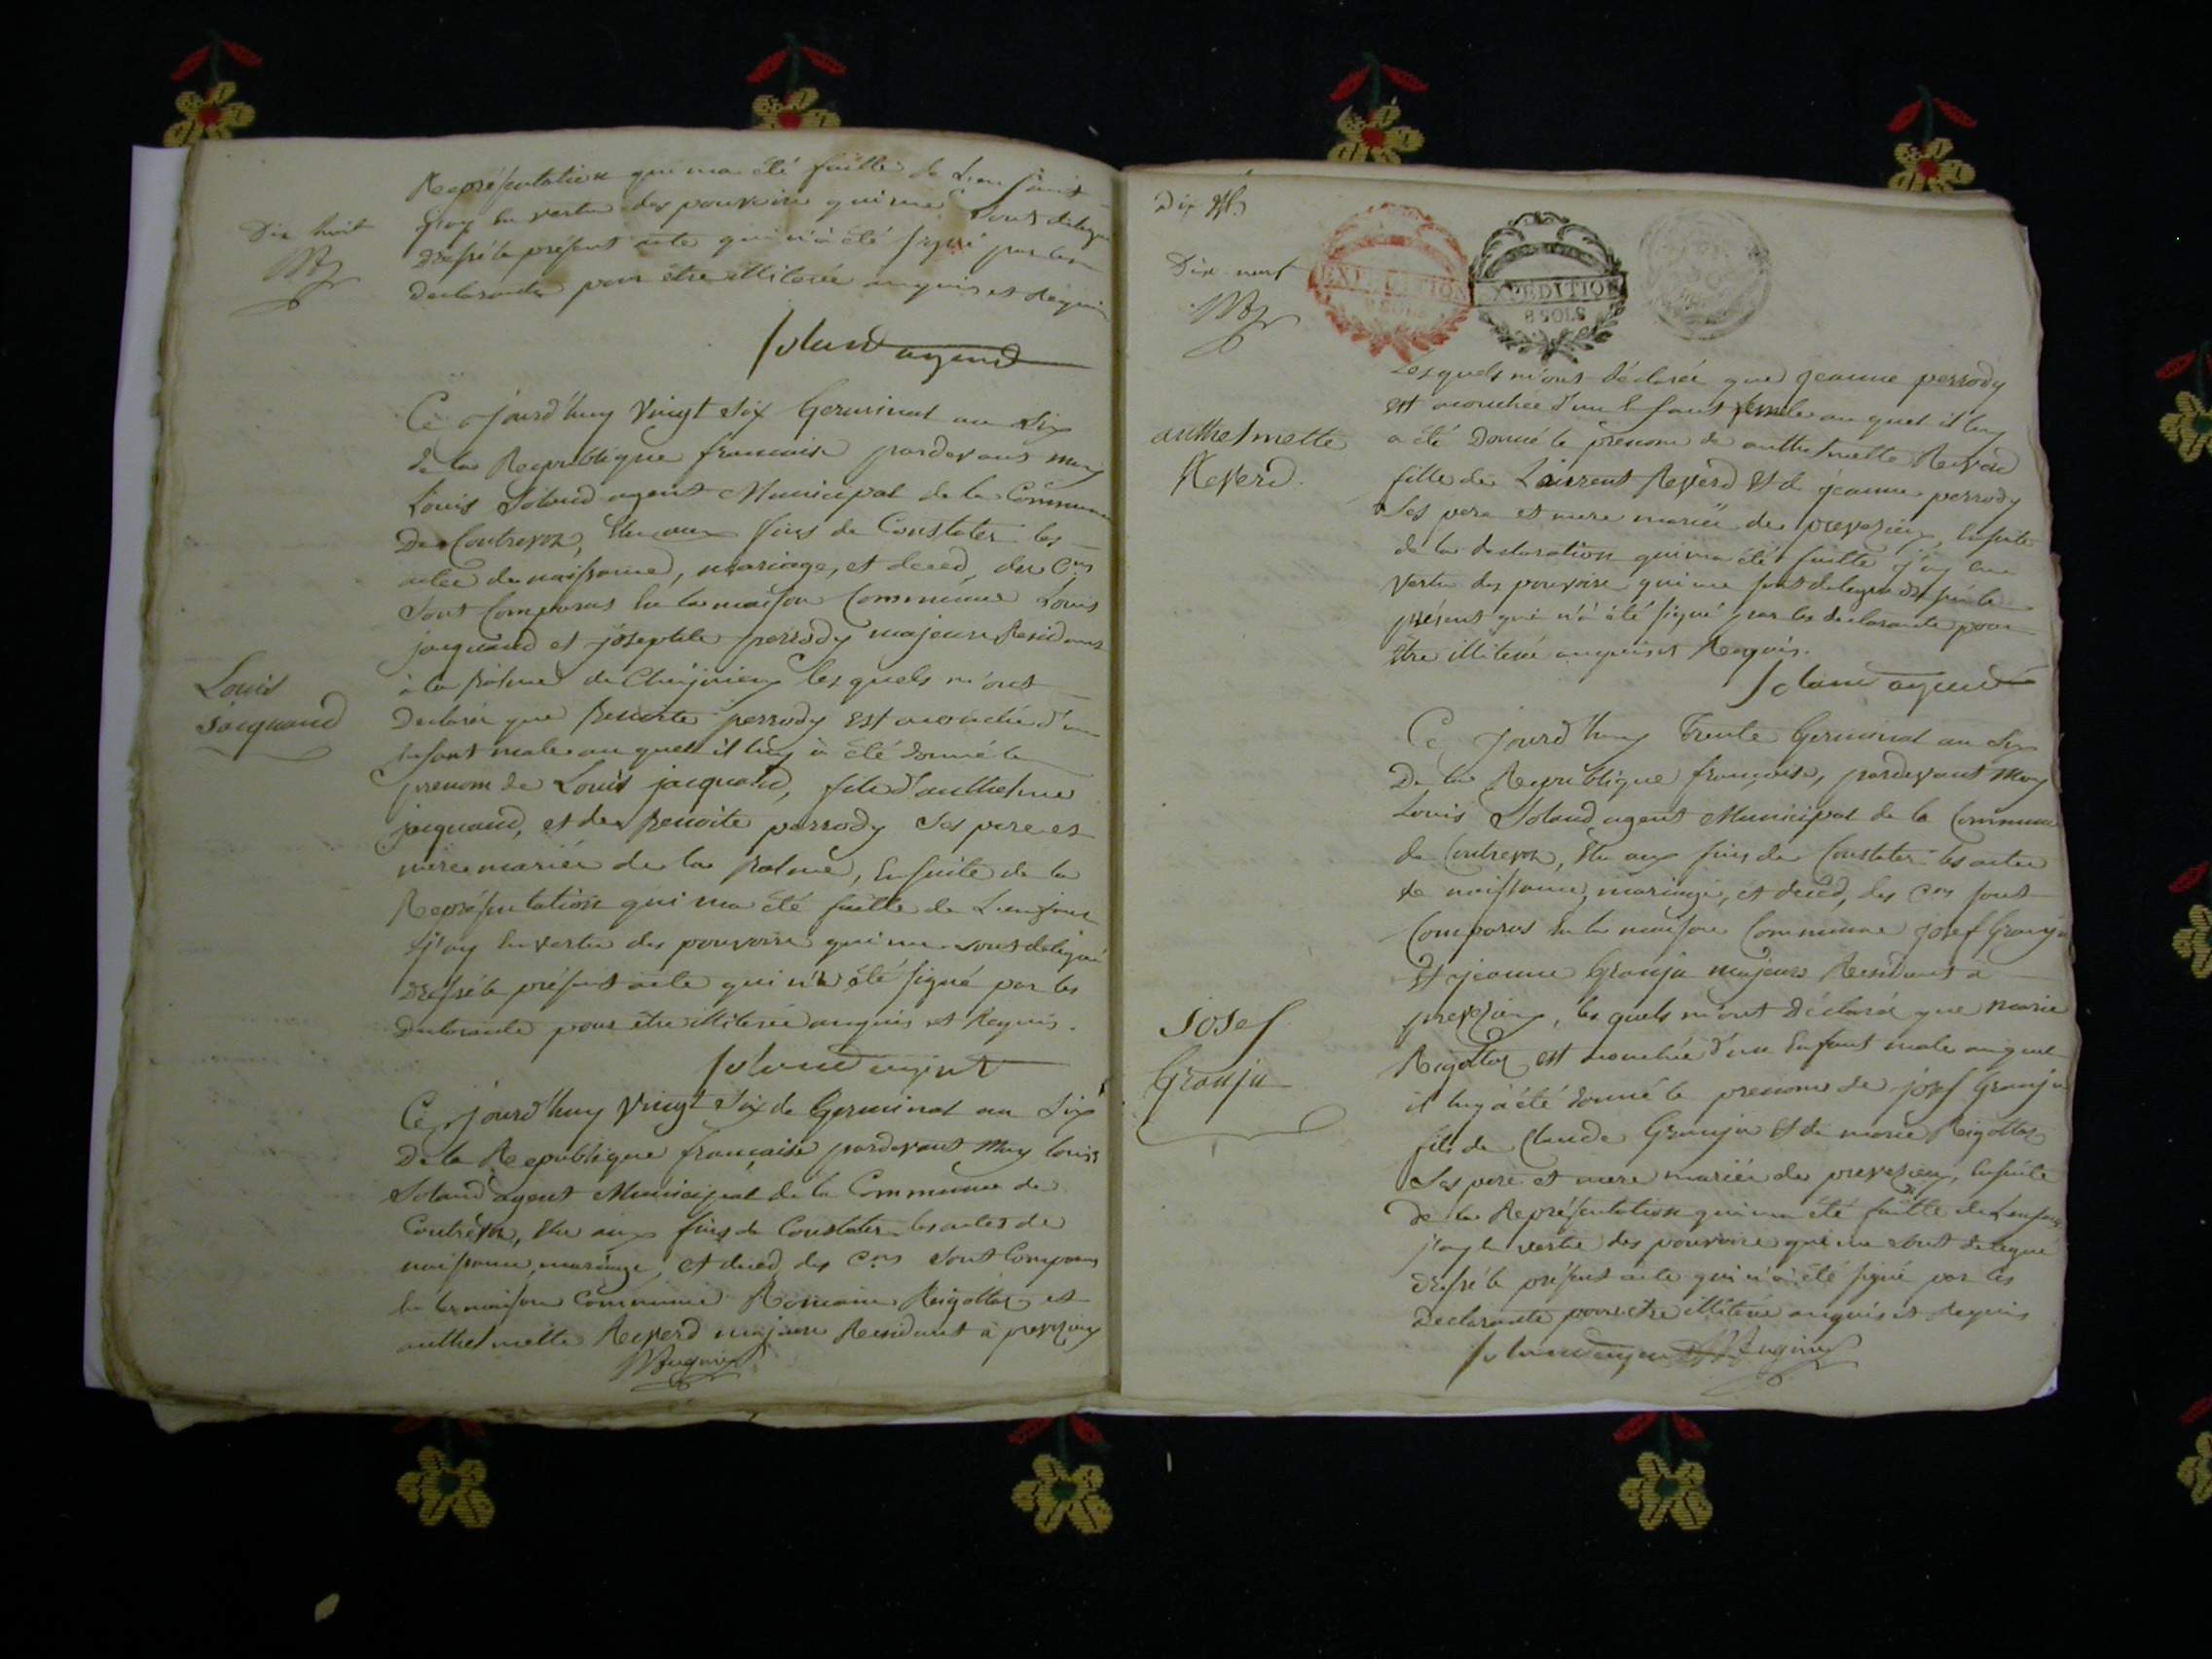 Dix huit
Représentation qui ma été faitte de Lenfant
j'ay En vertu des pouvoirs qui me sont délégué
Dressé le présent acte qui n'a été signé par les
declarants pour être illiterée enquis et Requis
Soland agend
Louis
Jacquand
Ce jourd'huy vingt Six Germinal an Six
de la Republique francaise pardevant moy
Louis Soland agent Municipal de la Commune
De Contrevoz, Elu aux fins de Constater les
actes de naissance, mariage, et deced, des Cns
Sont Comparus En la maison Commune Louis
jacquand et josephte perrody majeurs Residants
à la palme de Cheignieu les quels m'ont
Declaré que Benoite perrody Est acouchée d'un
Enfant male au quel il luy à été donné le
prenom de Louis jacquand, fils d'anthelme
jacquand, et de Benoite perrody Ses pere et
mere mariée de la palme, Ensuite de la
Représentation qui ma été faitte de Lenfant
j'ay En vertu des pouvoirs qui me sont delegué
Dressé le présent acte qui n'à été signé par les
declarants pour être illiterée enquis et Requis.
Soland agent
Ce jourd'huy vingt Six de Germinal an Six
De la Republique française pardevant moy louis
Soland agent Municipal de la Commune de
Contrevoz, Elu aux fins de Constater les actes de
naissance, mariage, et deced, des Cns Sont Comparus
En la maison Commune Romain Reigottaz et
anthelmette Reverd majeurs Residants à prevezieu
Dix neuf
EXPEDITION
EXPEDITION
8 SOLS
anthelmette
Reverd.
Lesquels m'ont déclaré que jeanne perrody
est acouchée d'un Enfant femele au quel il luy
a été Donné le prenom de anthelmette Reverd
fille de Laurent Reverd Et de jeanne perrody
Ses pere et mere mariée de prevezieu, Ensuite
de la declaration qui ma été faitte j'ay En
vertu des pouvoirs qui me sont delegué dressé le
présent qui n'à été signé par les declarants pour
être illiteré enquis et Requis.
Soland agend
Josef
Granju
Ce jourd'huy Trente Germinal an Six
De la Republique française, pardevant moy
Louis Soland agent Municipal de la Commune
de Contrevoz, Elu aux fins de Constater les actes
de naissance, mariage, et deced, des Cns sont
Comparus En la maison Commune josef Granju
Et jeanne Granju majeurs Residants à
prevezieu, les quels m'ont Déclaré que marie
Reigottaz est acouchée d'un Enfant male au quel
il luy à été donné le prenom de josef Granju
fils de Claude Granju Et de marie Reigottaz
Ses pere et mere mariée de prevezieu, Ensuite
de la Représentation qui ma été faitte de Lenfant
j'ay En vertu des pouvoirs qui me sont delegué
dressé le présent acte qui n'à été signé par les
declarants pour être illiteré enquis et Requis
Soland agend